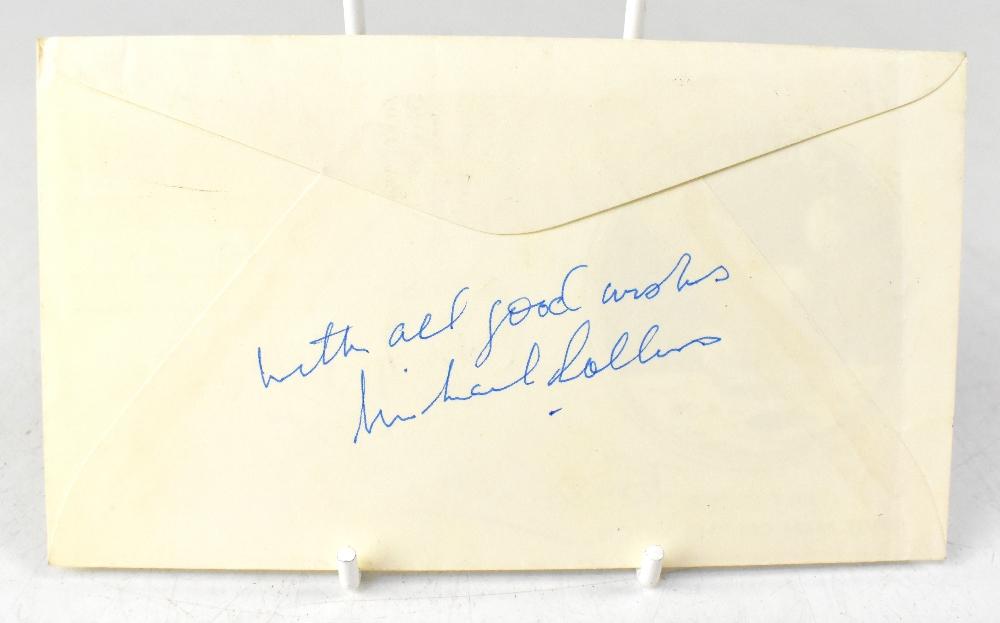 with all good wishes
Michael Collins